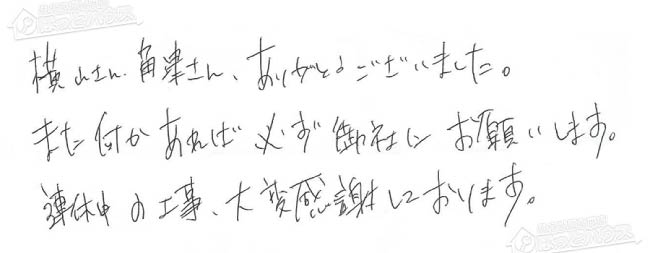 横山さん、角津さん、ありがとうございました。
また何かあれば必ず御社にお願いします。
連休中の工事、大変感謝しております。